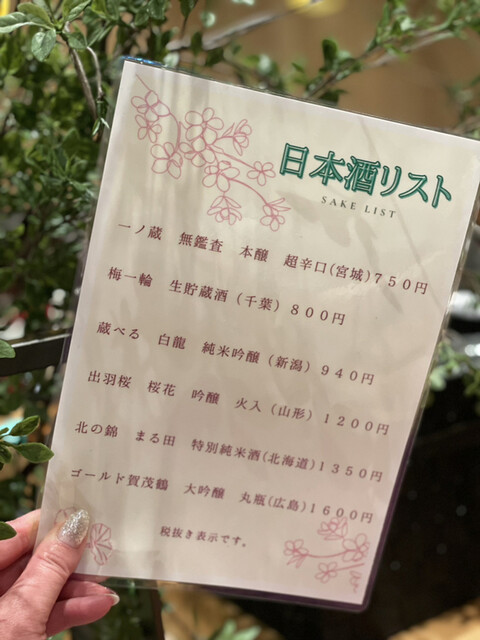 日本酒リスト
SAKE LIST
一ノ蔵 無鑑査 本醸 超辛口(宮城)750円
梅一輪 生貯蔵酒(千葉)800円
蔵べる 白龍 純米吟醸(新潟)940円
出羽桜 桜花 吟醸 火入(山形)1200円
北の錦 まる田 特別純米酒(北海道)1350円
ゴールド賀茂鶴 大吟醸 丸瓶(広島)1600円
税抜き表示です。